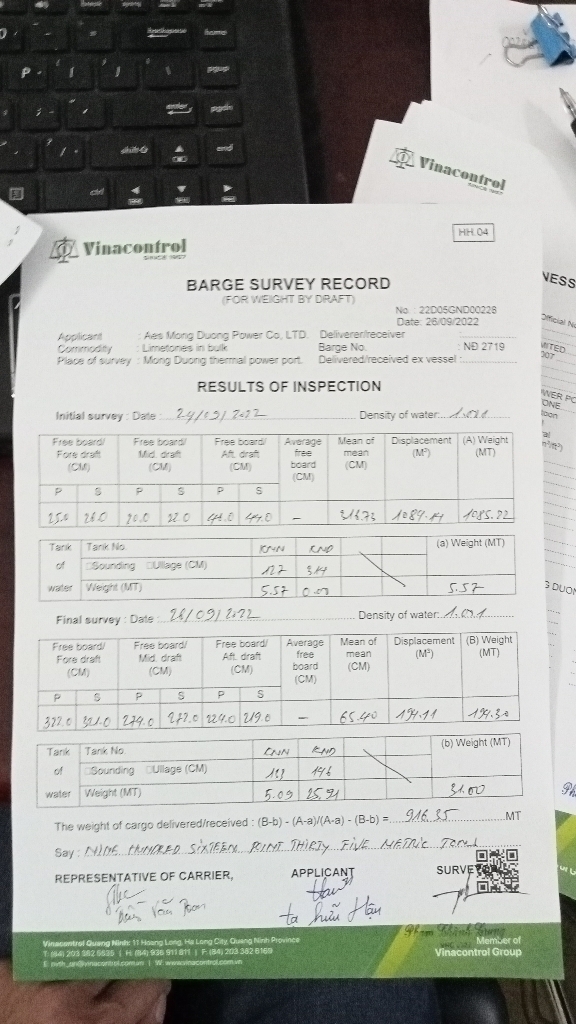 backspace
home
P
pgup
enter
pgdn
shift
end
ctrl
Vinacontrol
SINCE 1957
Vinacontrol
SINCE 1957
HH.04
BARGE SURVEY RECORD
(FOR WEIGHT BY DRAFT)
No : 22D05GND00228
Date: 26/09/2022
Applicant : Aes Mong Duong Power Co, LTD. Deliverer/receiver
Commodity : Limetones in bulk Barge No. : NĐ 2719
Place of survey : Mong Duong thermal power port. Delivered/received ex vessel :
RESULTS OF INSPECTION
Initial survey : Date : 24/09/2022 Density of water: 1.001
Free board/ Fore draft (CM) Free board/ Mid. draft (CM) Free board/ Aft. draft (CM) Average free board (CM) Mean of mean (CM) Displacement (M³) (A) Weight (MT)
P S P S P S
25.0 26.0 20.0 22.0 44.0 – 1085.22
Tank of water Tank No. KNN KND (a) Weight (MT)
Sounding Ullage (CM) 127
Weight (MT) 5.57 5.57
Final survey : Date : 26/09/2022 Density of water: 1.001
Free board/ Fore draft (CM) Free board/ Mid. draft (CM) Free board/ Aft. draft (CM) Average free board (CM) Mean of mean (CM) Displacement (M³) (B) Weight (MT)
P S P S P S
322.0 321.0 274.0 272.0 224.0 219.0 – 65.40 194.11 194.30
Tank of water Tank No. KNN KND (b) Weight (MT)
Sounding Ullage (CM) 146
Weight (MT) 5.09 25.91 31.00
The weight of cargo delivered/received : (B-b) - (A-a)/(A-a) - (B-b) = 916.35 MT
Say : NINE HUNDRED SIXTEEN POINT THIRTY FIVE METRIC TONS
REPRESENTATIVE OF CARRIER, APPLICANT SURVEYOR
Tạ Hữu Hậu
Vinacontrol Quang Ninh: 11 Hoang Long, Ha Long City, Quang Ninh Province
Member of
Vinacontrol Group